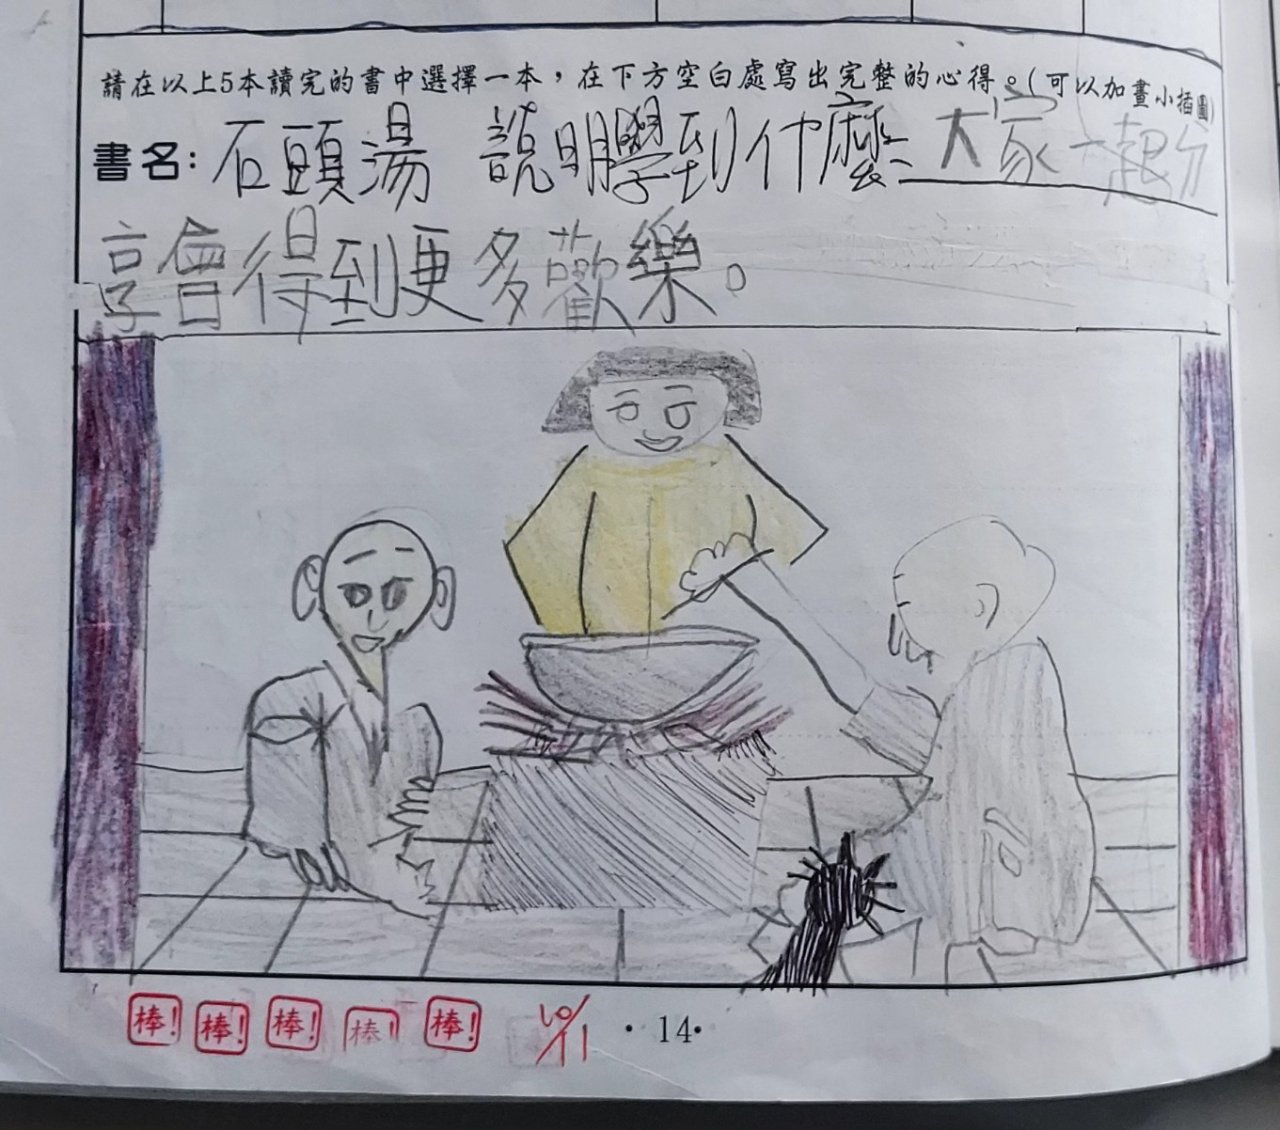 請在以上5本讀完的書中選擇一本，在下方空白處寫出完整的心得。(可以加畫小插圖)
書名：石頭湯 說明學到什麼：大家一起分
享會得到更多歡樂。
棒! 棒! 棒! 棒! 棒! 10/11 ·14·